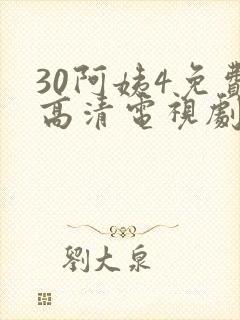 30阿姨4免費
高清電視劇
劉大泉